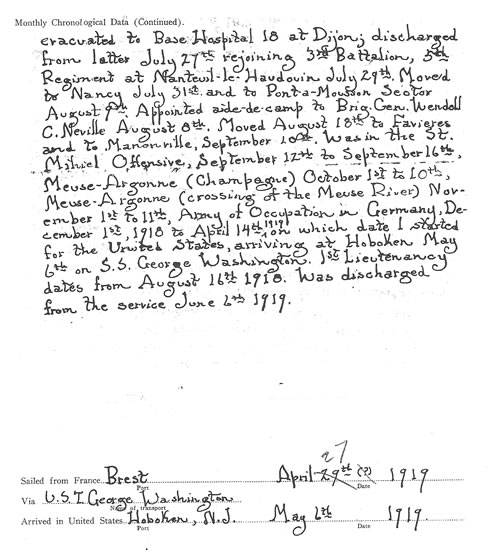 Monthly Chronological Data (Continued).
evacuated to Base Hospital 18 at Dijon; discharged
from latter July 27th rejoining 3rd Battalion, 5th
Regiment at Nanteuil-le-Haudouin July 29th. Moved
to Nancy July 31st. and to Pont-a-Mousson Sector
August 9th. Appointed aide-de-camp to Brig. Gen. Wendell
C. Neville August 8th. Moved August 18th to Favieres
and to Manonville, September 10th. Was in the St.
Mihiel Offensive, September 12th to September 16th,
Meuse-Argonne (Champagne) October 1st to 10th,
Meuse-Argonne (crossing of the Meuse River) Nov-
ember 1st to 11th, Army of Occupation in Germany, De-
cember 1st, 1918 to April 14th, 1919 on which date I started
for the United States, arriving at Hoboken May
6th on S.S. George Washington. 1st Lieutenancy
dates from August 16th 1918. Was discharged
from the service June 6th 1919.
27
Sailed from France Brest April 29th (?) 1919
Port Date
Via U.S.T. George Washington
Name of transport
Arrived in United States Hoboken, N.J. May 6th 1919.
Port Date